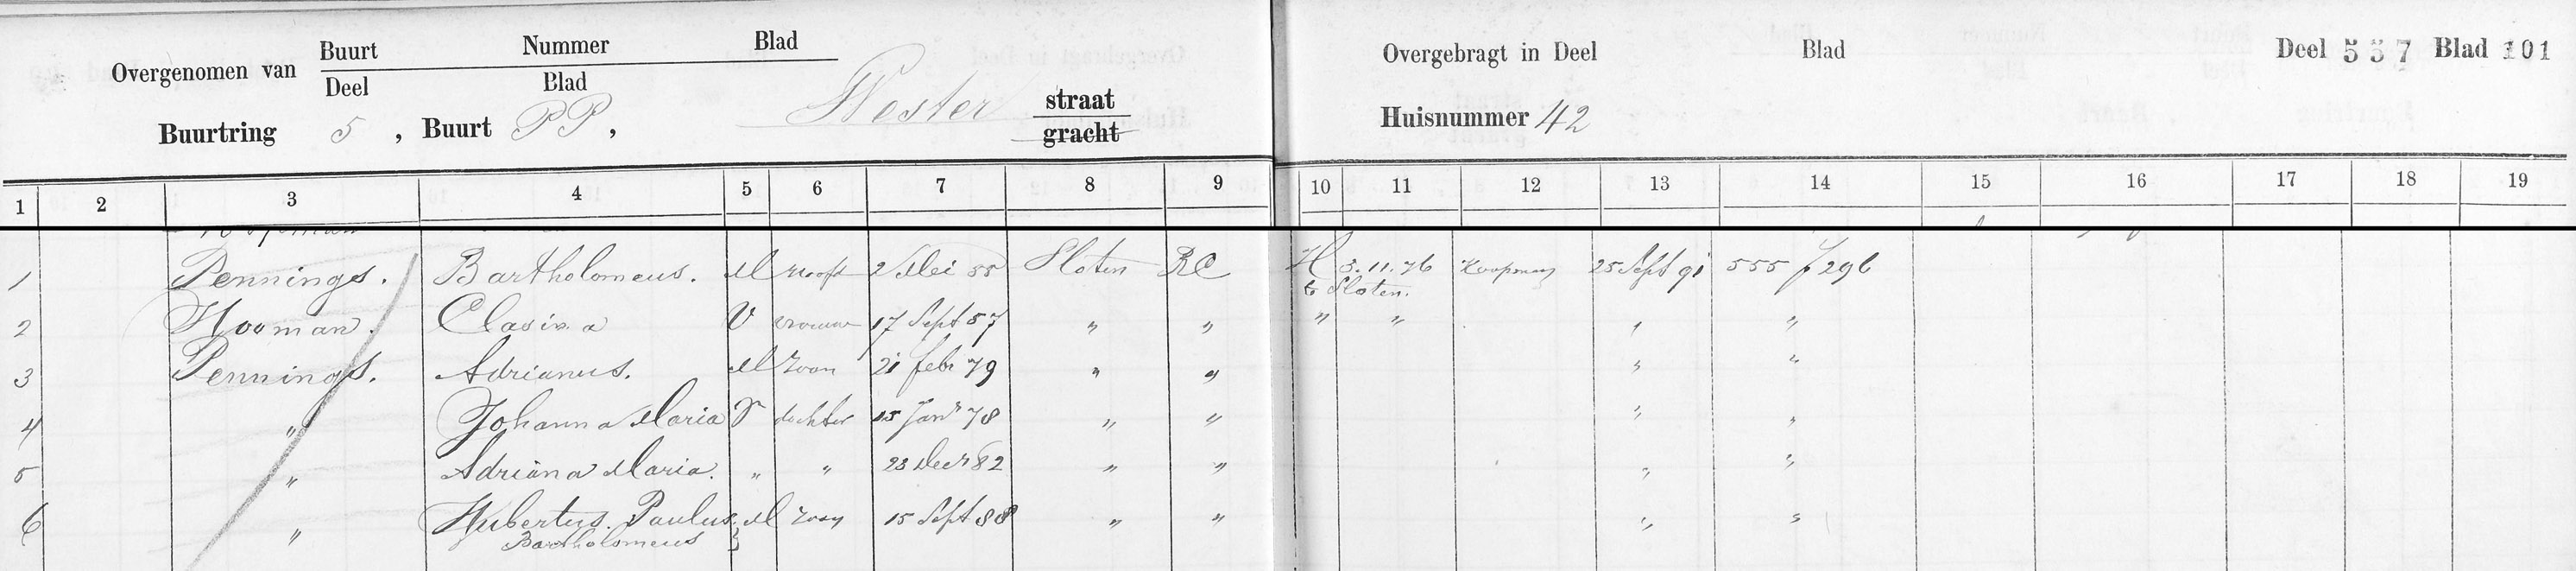 Overgenomen van Buurt Nummer Blad
Deel Blad
Buurtring 5 , Buurt PP , Wester straat
gracht
Overgebragt in Deel Blad Deel 557 Blad 101
Huisnummer 42
1 2 3 4 5 6 7 8 9 10 11 12 13 14 15 16 17 18 19
1 Pennings. Bartholomeus. M Hoofd 2 Mei 55 Sloten RC H 3.11.76 Koopman 25 Sept 91 555 f 296
to Sloten.
2 Hooman. Clasina V vrouw 17 Sept 57 " " " " " "
3 Pennings. Adrianus. M Zoon 21 Febr 79 " " " "
4 " Johanna Maria V dochter 15 Janr 78 " " " "
5 " Adriana Maria. " " 23 Decr 82 " " " "
6 " Hubertus. Paulus. M Zoon 15 Sept 88 " " " "
Bartholomeus